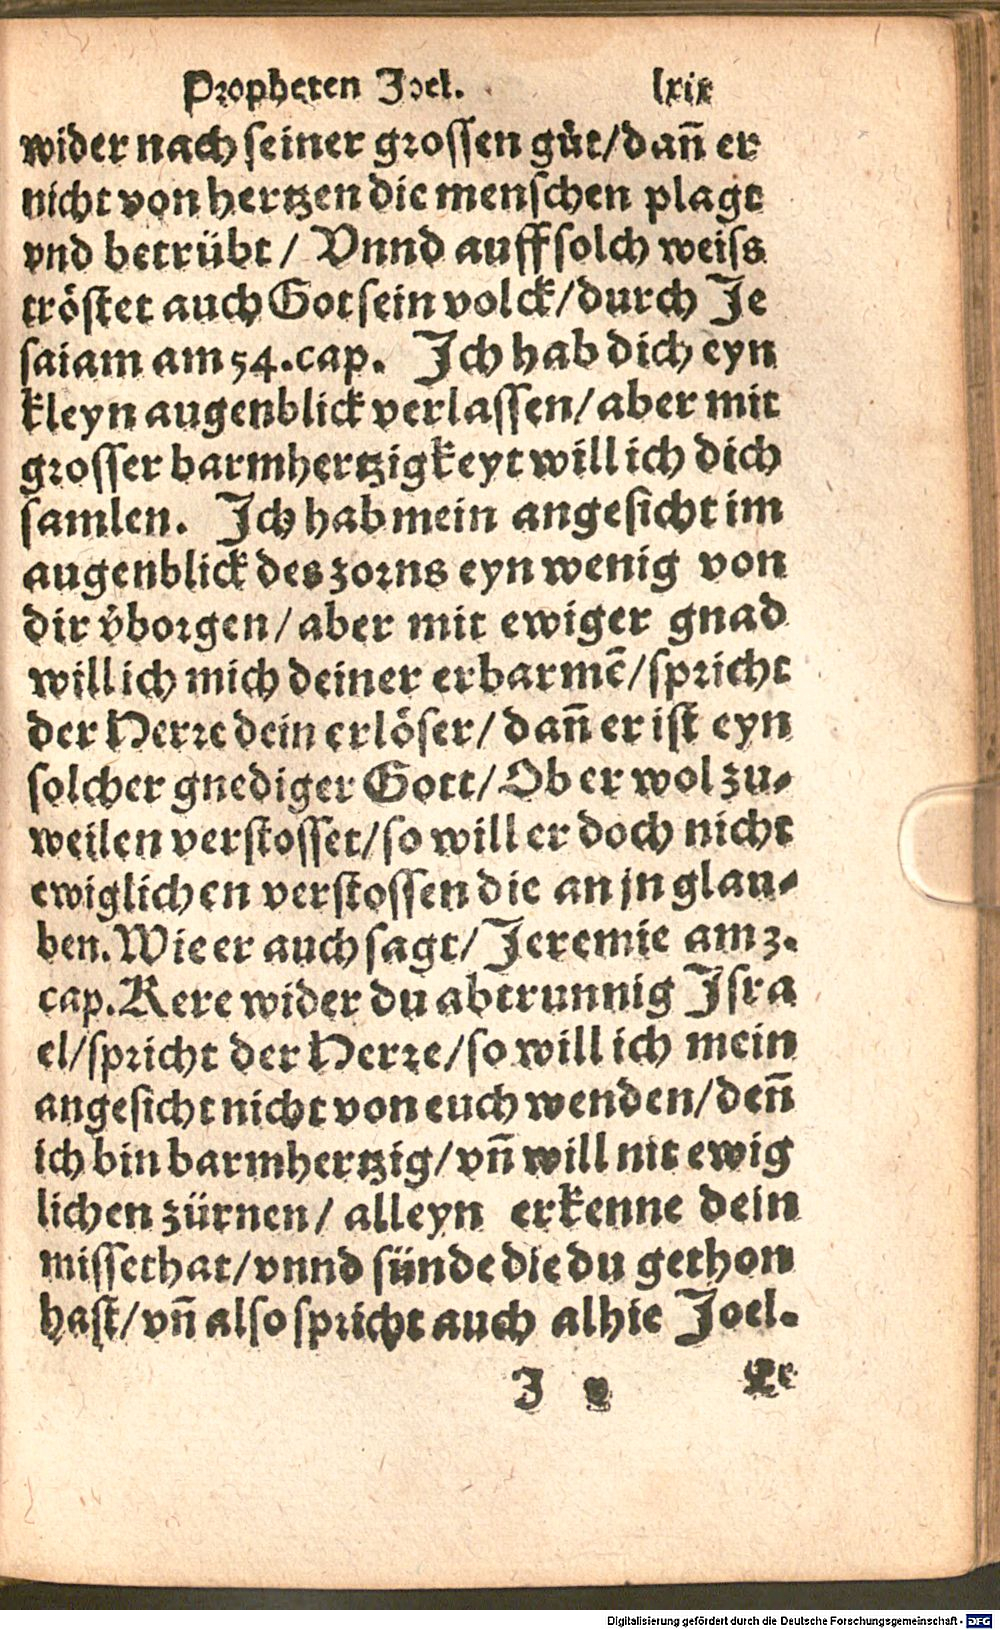 Propheten Joel. lxix
wider nach seiner grossen guͤt/dañ er
nicht von hertzen die menschen plagt
vnd betrübt/ Vnnd auff solch weiss
tröstet auch Got sein volck/durch Je
saiam am 54.cap. Ich hab dich eyn
kleyn augenblick verlassen/aber mit
grosser barmhertzigkeyt will ich dich
samlen. Ich hab mein angesicht im
augenblick des zorns eyn wenig von
dir v̉borgen/aber mit ewiger gnad
will ich mich deiner erbarmē/spricht
der Herre dein erlöser/dañ er ist eyn
solcher gnediger Gott/Ob er wol zu-
weilen verstosset/so will er doch nicht
ewiglichen verstossen die an jn glau-
ben. Wie er auch sagt/Jeremie am 3.
cap. Kere wider du abtrunnig Isra
el/spricht der Herre/so will ich mein
angesicht nicht von euch wenden/deñ
ich bin barmhertzig/vñ will nit ewig
lichen zürnen/ alleyn erkenne dein
missethat/vnnd sünde die du gethon
hast/vñ also spricht auch alhie Joel.
J
Digitalisierung gefördert durch die Deutsche Forschungsgemeinschaft - DFG